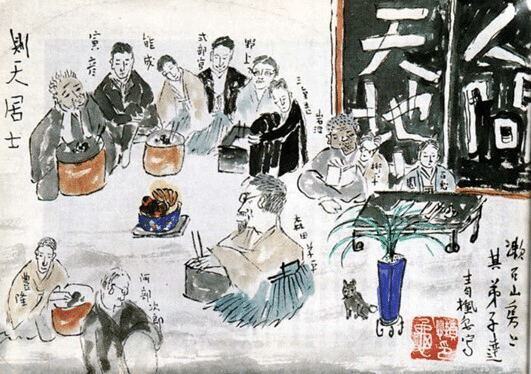 人間
天地
則天居士
寅彦
能成
式部官
野上
三重吉
岩波
森田草平
阿部次郎
豊隆
漱石山房と
其弟子達
青楓写